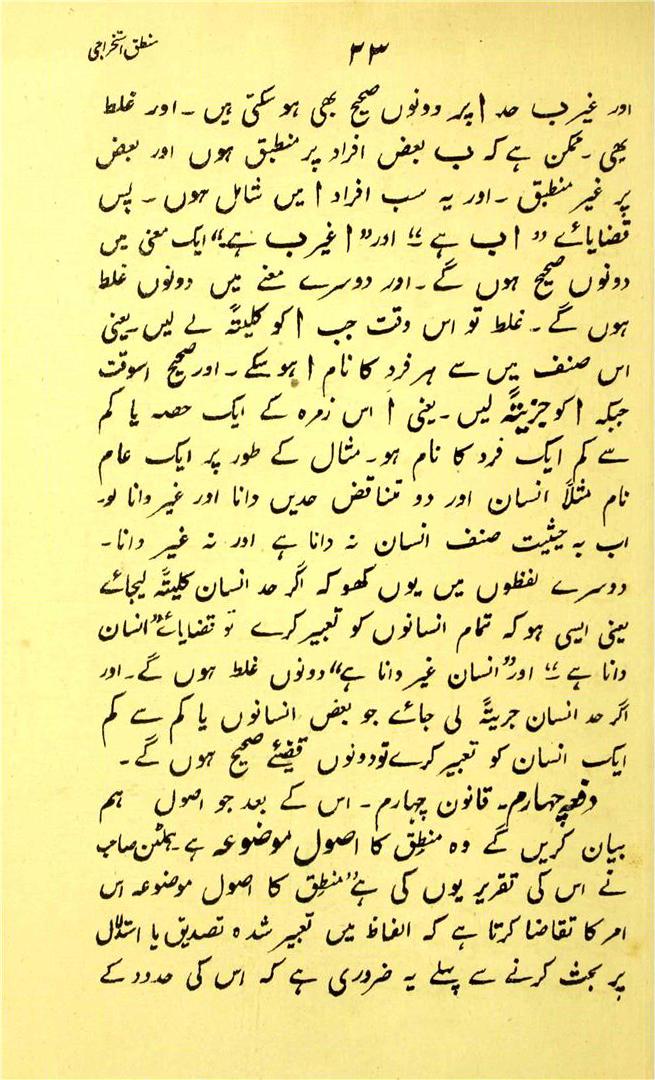 منطق استخراجی
۳۳
اور غیر ب حد ا پر دونوں صحیح بھی ہو سکتی ہیں ۔ اور غلط
بھی ۔ ممکن ہے کہ ب بعض افراد پر منطبق ہوں اور بعض
پر غیر منطبق ۔ اور یہ سب افراد ا میں شامل ہوں ۔ پس
قضایائے " ا ب ہے " اور " ا غیر ب ہے " ایک معنی میں
دونوں صحیح ہوں گے ۔ اور دوسرے معنے میں دونوں غلط
ہوں گے ۔ غلط تو اس وقت جب ا کو کلیتہً لے لیں ۔ یعنی
اس صنف میں سے ہر فرد کا نام ا ہو سکے ۔ اور صحیح اسوقت
جبکہ ا کو جزیتہً لیں ۔ یعنی ا اس زمرہ کے ایک حصہ یا کم
سے کم ایک فرد کا نام ہو ۔ مثال کے طور پر ایک عام
نام مثلاً انسان اور دو تناقض حدیں دانا اور غیر دانا لو ۔
اب بہ حیثیت صنف انسان نہ دانا ہے اور نہ غیر دانا ۔
دوسرے لفظوں میں یوں کہو کہ اگر حد انسان کلیتہً لیجائے
یعنی ایسی ہو کہ تمام انسانوں کو تعبیر کرے تو قضایائے " انسان
دانا ہے " اور " انسان غیر دانا ہے " دونوں غلط ہوں گے ۔ اور
اگر حد انسان جزیتہً لی جائے جو بعض انسانوں یا کم سے کم
ایک انسان کو تعبیر کرے تو دونوں قضئے صحیح ہوں گے ۔
دفعہ چہارم ۔ قانون چہارم ۔ اس کے بعد جو اصول ہم
بیان کریں گے وہ منطق کا اصول موضوعہ ہے ۔ ہملٹن صاحب
نے اس کی تقریر یوں کی ہے " منطق کا اصول موضوعہ اس
امر کا تقاضا کرتا ہے کہ الفاظ میں تعبیر شدہ تصدیق یا استدلال
پر بحث کرنے سے پہلے یہ ضروری ہے کہ اس کی حدود کے